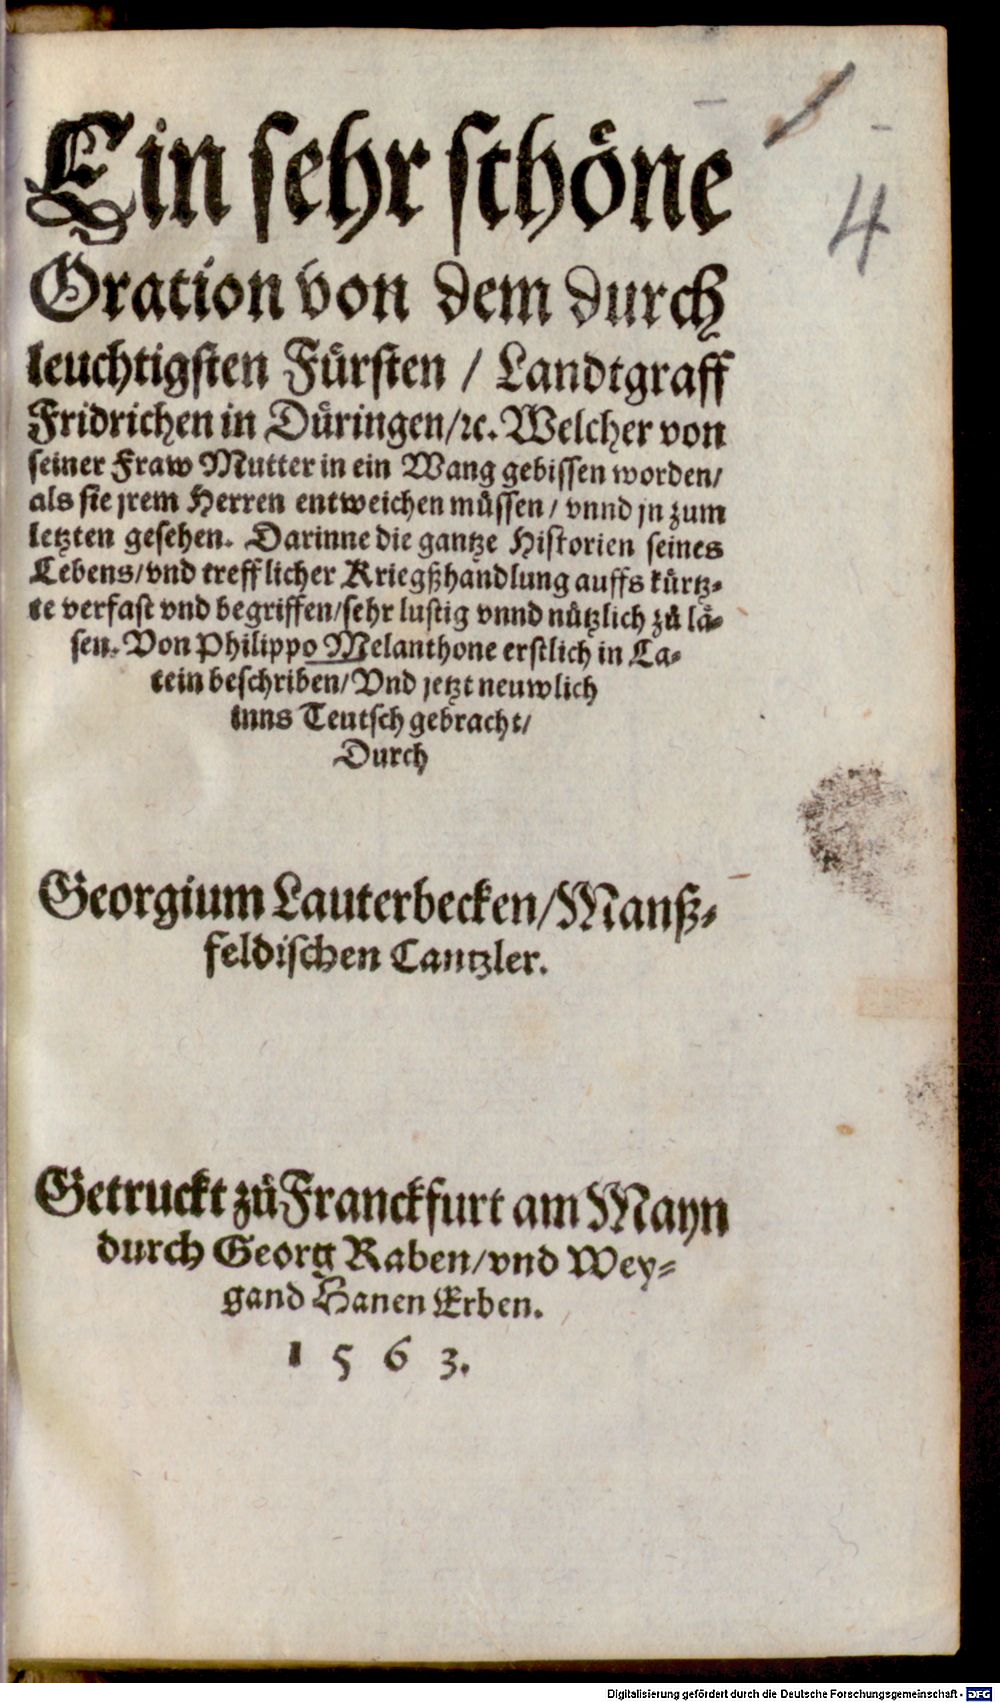 4
Ein sehr schöne
Oration von dem durch
leuchtigsten Fürsten / Landtgraff
Fridrichen in Düringen/ꝛc. Welcher von
seiner Fraw Mutter in ein Wang gebissen worden/
als sie jrem Herren entweichen müssen / vnnd jn zum
letzten gesehen. Darinne die gantze Historien seines
Lebens/vnd trefflicher Kriegßhandlung auffs kürtz⸗
te verfast vnd begriffen/sehr lustig vnnd nützlich zů lä⸗
sen. Von Philippo Melanthone erstlich in La⸗
tein beschriben/Vnd jetzt neuwlich
inns Teutsch gebracht/
Durch
Georgium Lauterbecken/Manß⸗
feldischen Cantzler.
Getruckt zů Franckfurt am Mayn
durch Georg Raben/vnd Wey⸗
gand Hanen Erben.
1 5 6 3.
Digitalisierung gefördert durch die Deutsche Forschungsgemeinschaft - DFG